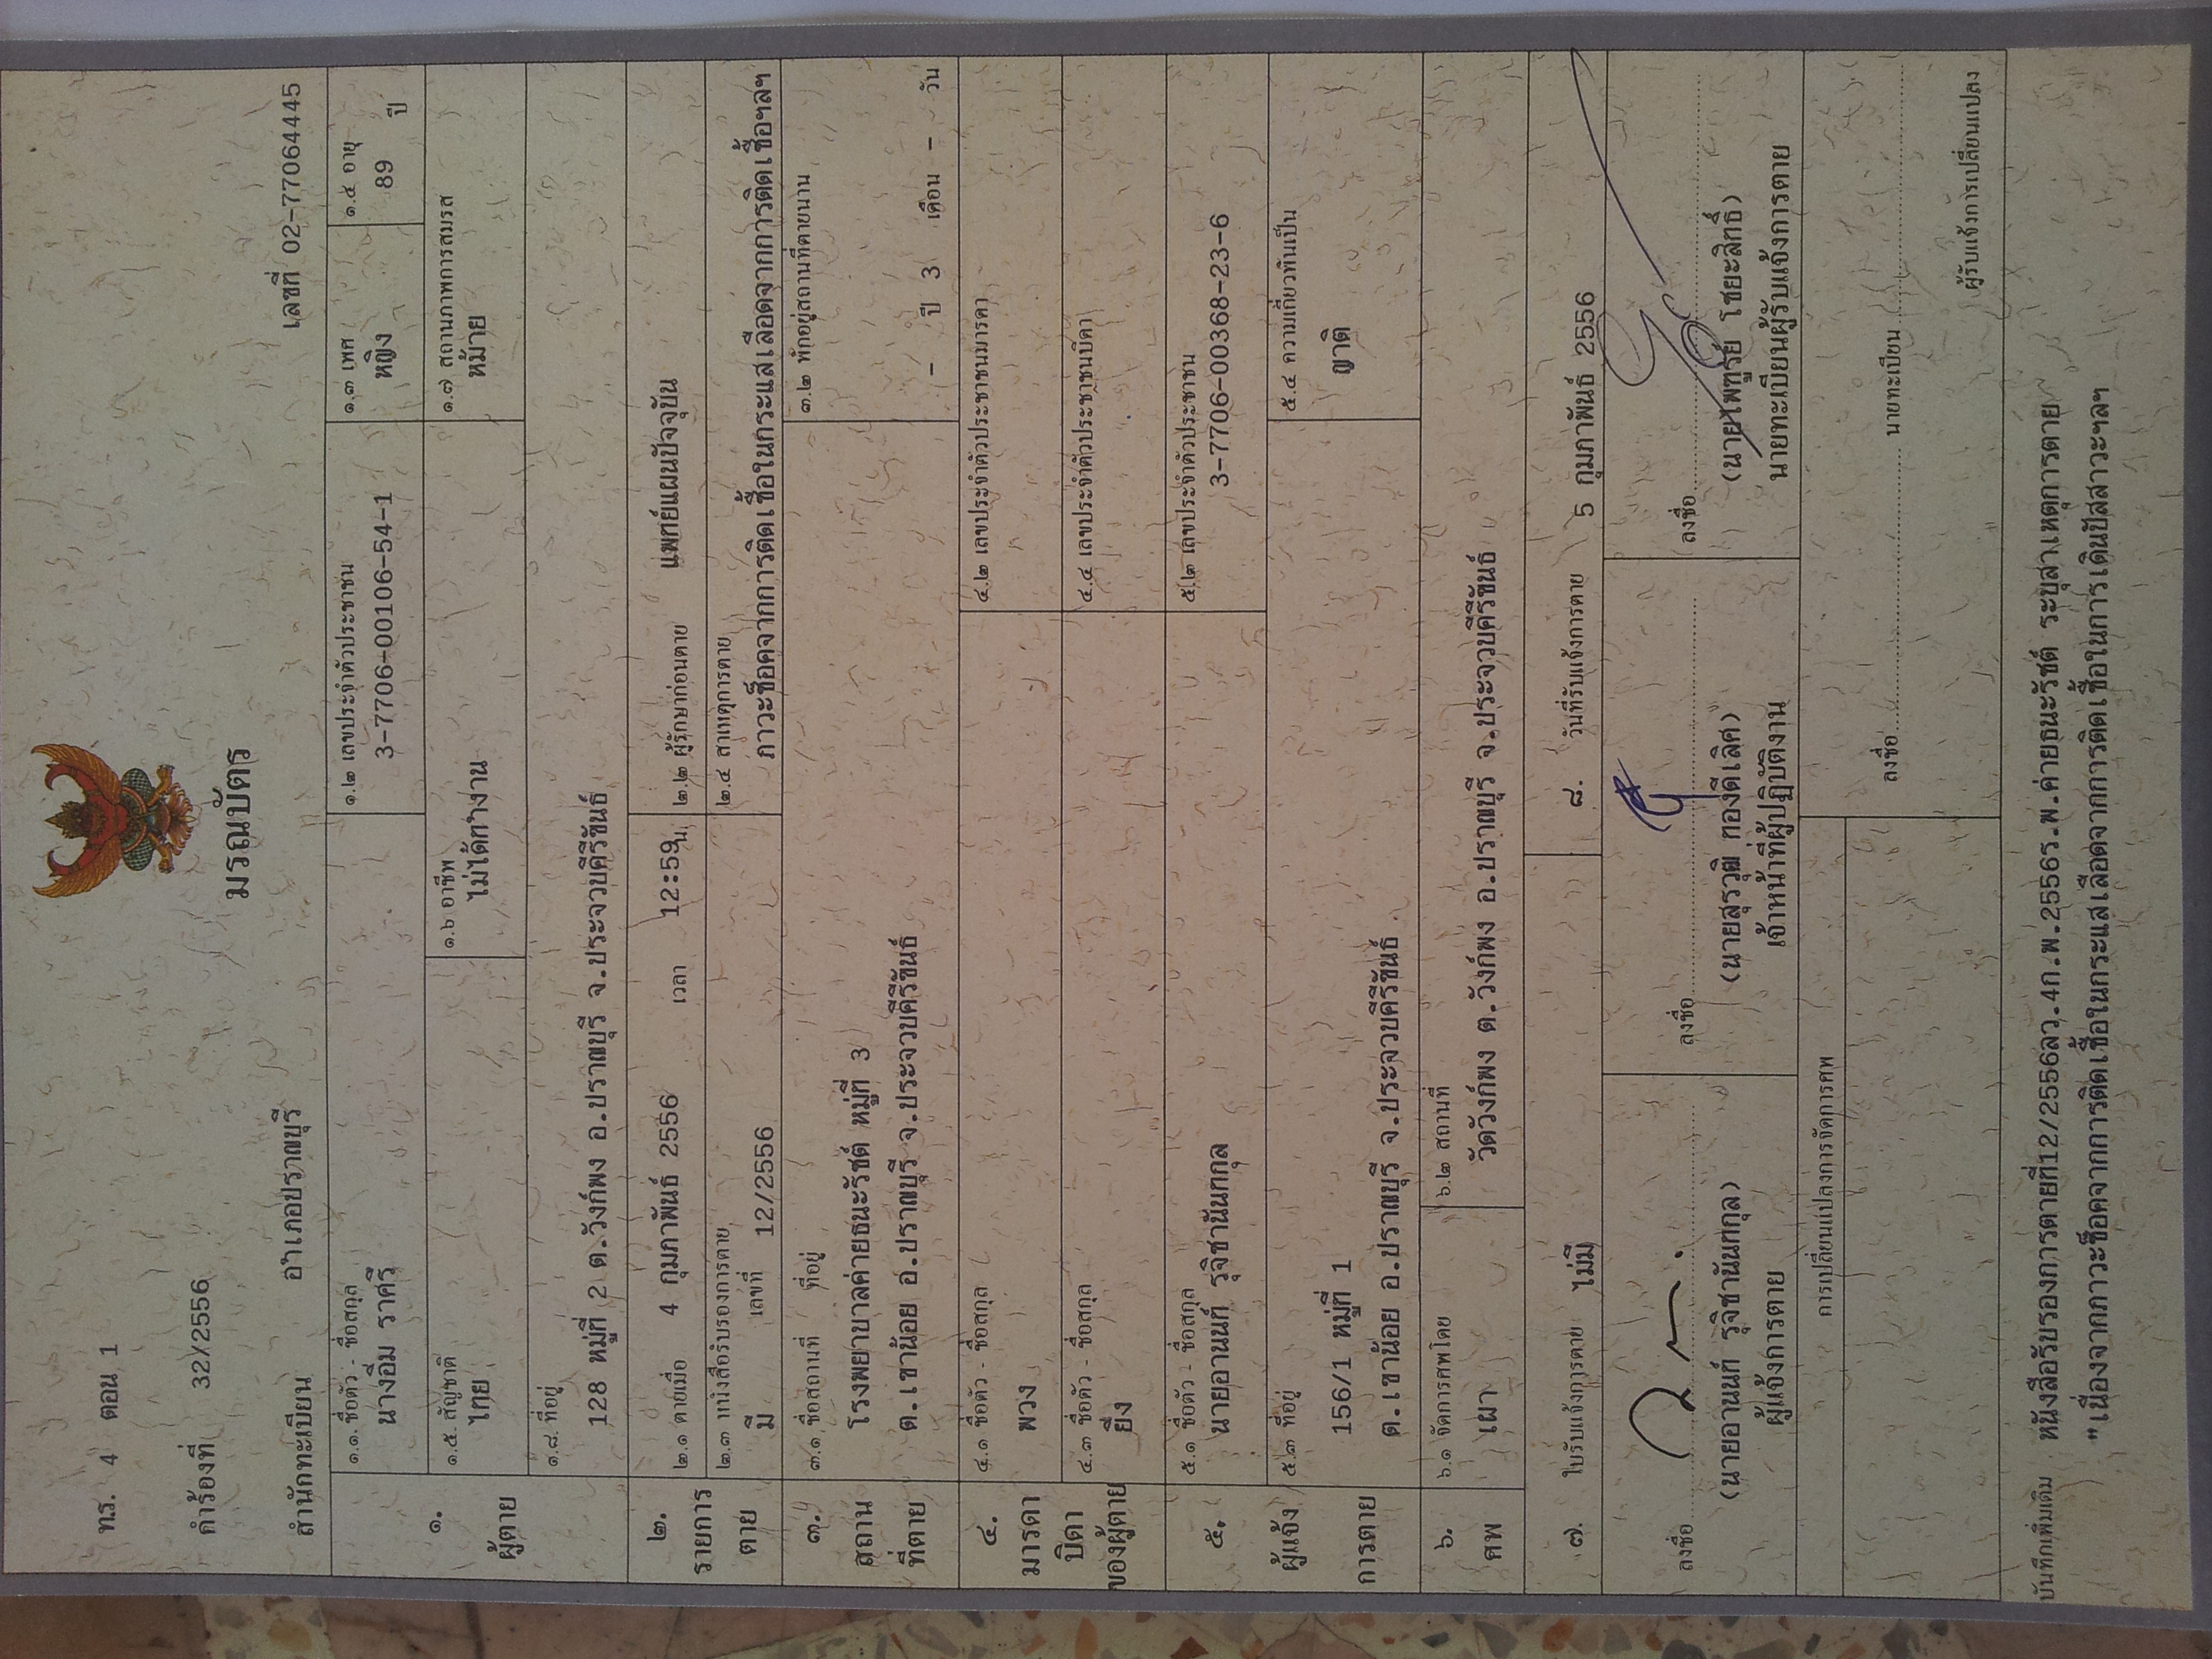 ท.ร. 4 ตอน 1
มรณบัตร
คำร้องที่ 32/2556
สำนักทะเบียน อำเภอปราณบุรี เลขที่ 02-77064445
๑. ผู้ตาย
๑.๑. ชื่อตัว - ชื่อสกุล ๑.๒ เลขประจำตัวประชาชน ๑.๓ เพศ ๑.๔ อายุ
นางอิ่ม ราศรี 3-7706-00106-54-1 หญิง 89 ปี
๑.๕. สัญชาติ ๑.๖ อาชีพ ๑.๗ สถานภาพการสมรส
ไทย ไม่ได้ทำงาน หม้าย
๑.๘. ที่อยู่
128 หมู่ที่ 2 ต.วังก์พง อ.ปราณบุรี จ.ประจวบคีรีขันธ์
๒. รายการตาย
๒.๑ ตายเมื่อ 4 กุมภาพันธ์ 2556 เวลา 12:59น. ๒.๒ ผู้รักษาก่อนตาย แพทย์แผนปัจจุบัน
๒.๓ หนังสือรับรองการตาย ๒.๔ สาเหตุการตาย
มี เลขที่ 12/2556 ภาวะช็อคจากการติดเชื้อในกระแสเลือดจากการติดเชื้อฯลฯ
๓. สถานที่ตาย
๓.๑ ชื่อสถานที่ ที่อยู่ ๓.๒ พักอยู่สถานที่ตายนาน
โรงพยาบาลค่ายธนะรัชต์ หมู่ที่ 3
ต.เขาน้อย อ.ปราณบุรี จ.ประจวบคีรีขันธ์ - ปี 3 เดือน - วัน
๔. มารดา บิดา ของผู้ตาย
๔.๑ ชื่อตัว - ชื่อสกุล ๔.๒ เลขประจำตัวประชาชนมารดา
พวง
๔.๓ ชื่อตัว - ชื่อสกุล ๔.๔ เลขประจำตัวประชาชนบิดา
ยิ่ง
๕. ผู้แจ้งการตาย
๕.๑ ชื่อตัว - ชื่อสกุล ๕.๒ เลขประจำตัวประชาชน
นายอานนท์ รุจิชานันทกุล 3-7706-00368-23-6
๕.๓ ที่อยู่ ๕.๔ ความเกี่ยวพันเป็น
156/1 หมู่ที่ 1 ญาติ
ต.เขาน้อย อ.ปราณบุรี จ.ประจวบคีรีขันธ์
๖. ศพ
๖.๑ จัดการศพโดย ๖.๒ สถานที่
เผา วัดวังก์พง ต.วังก์พง อ.ปราณบุรี จ.ประจวบคีรีขันธ์
๗. ใบรับแจ้งการตาย ไม่มี ๘. วันที่รับแจ้งการตาย 5 กุมภาพันธ์ 2556
ลงชื่อ ลงชื่อ ลงชื่อ
(นายอานนท์ รุจิชานันทกุล) (นายสุรวุฒิ ทองดีเลิศ) (นายไพฑูรย์ โชยะสิทธิ์)
ผู้แจ้งการตาย เจ้าหน้าที่ผู้ปฏิบัติงาน นายทะเบียนผู้รับแจ้งการตาย
การเปลี่ยนแปลงการจัดการศพ
ลงชื่อ นายทะเบียน
ผู้รับแจ้งการเปลี่ยนแปลง
บันทึกเพิ่มเติม หนังสือรับรองการตายที่12/2556ลว.4ก.พ.2556ร.พ.ค่ายธนะรัชต์ ระบุสาเหตุการตาย
"เนื่องจากภาวะช็อคจากการติดเชื้อในกระแสเลือดจากการติดเชื้อในทางเดินปัสสาวะฯลฯ